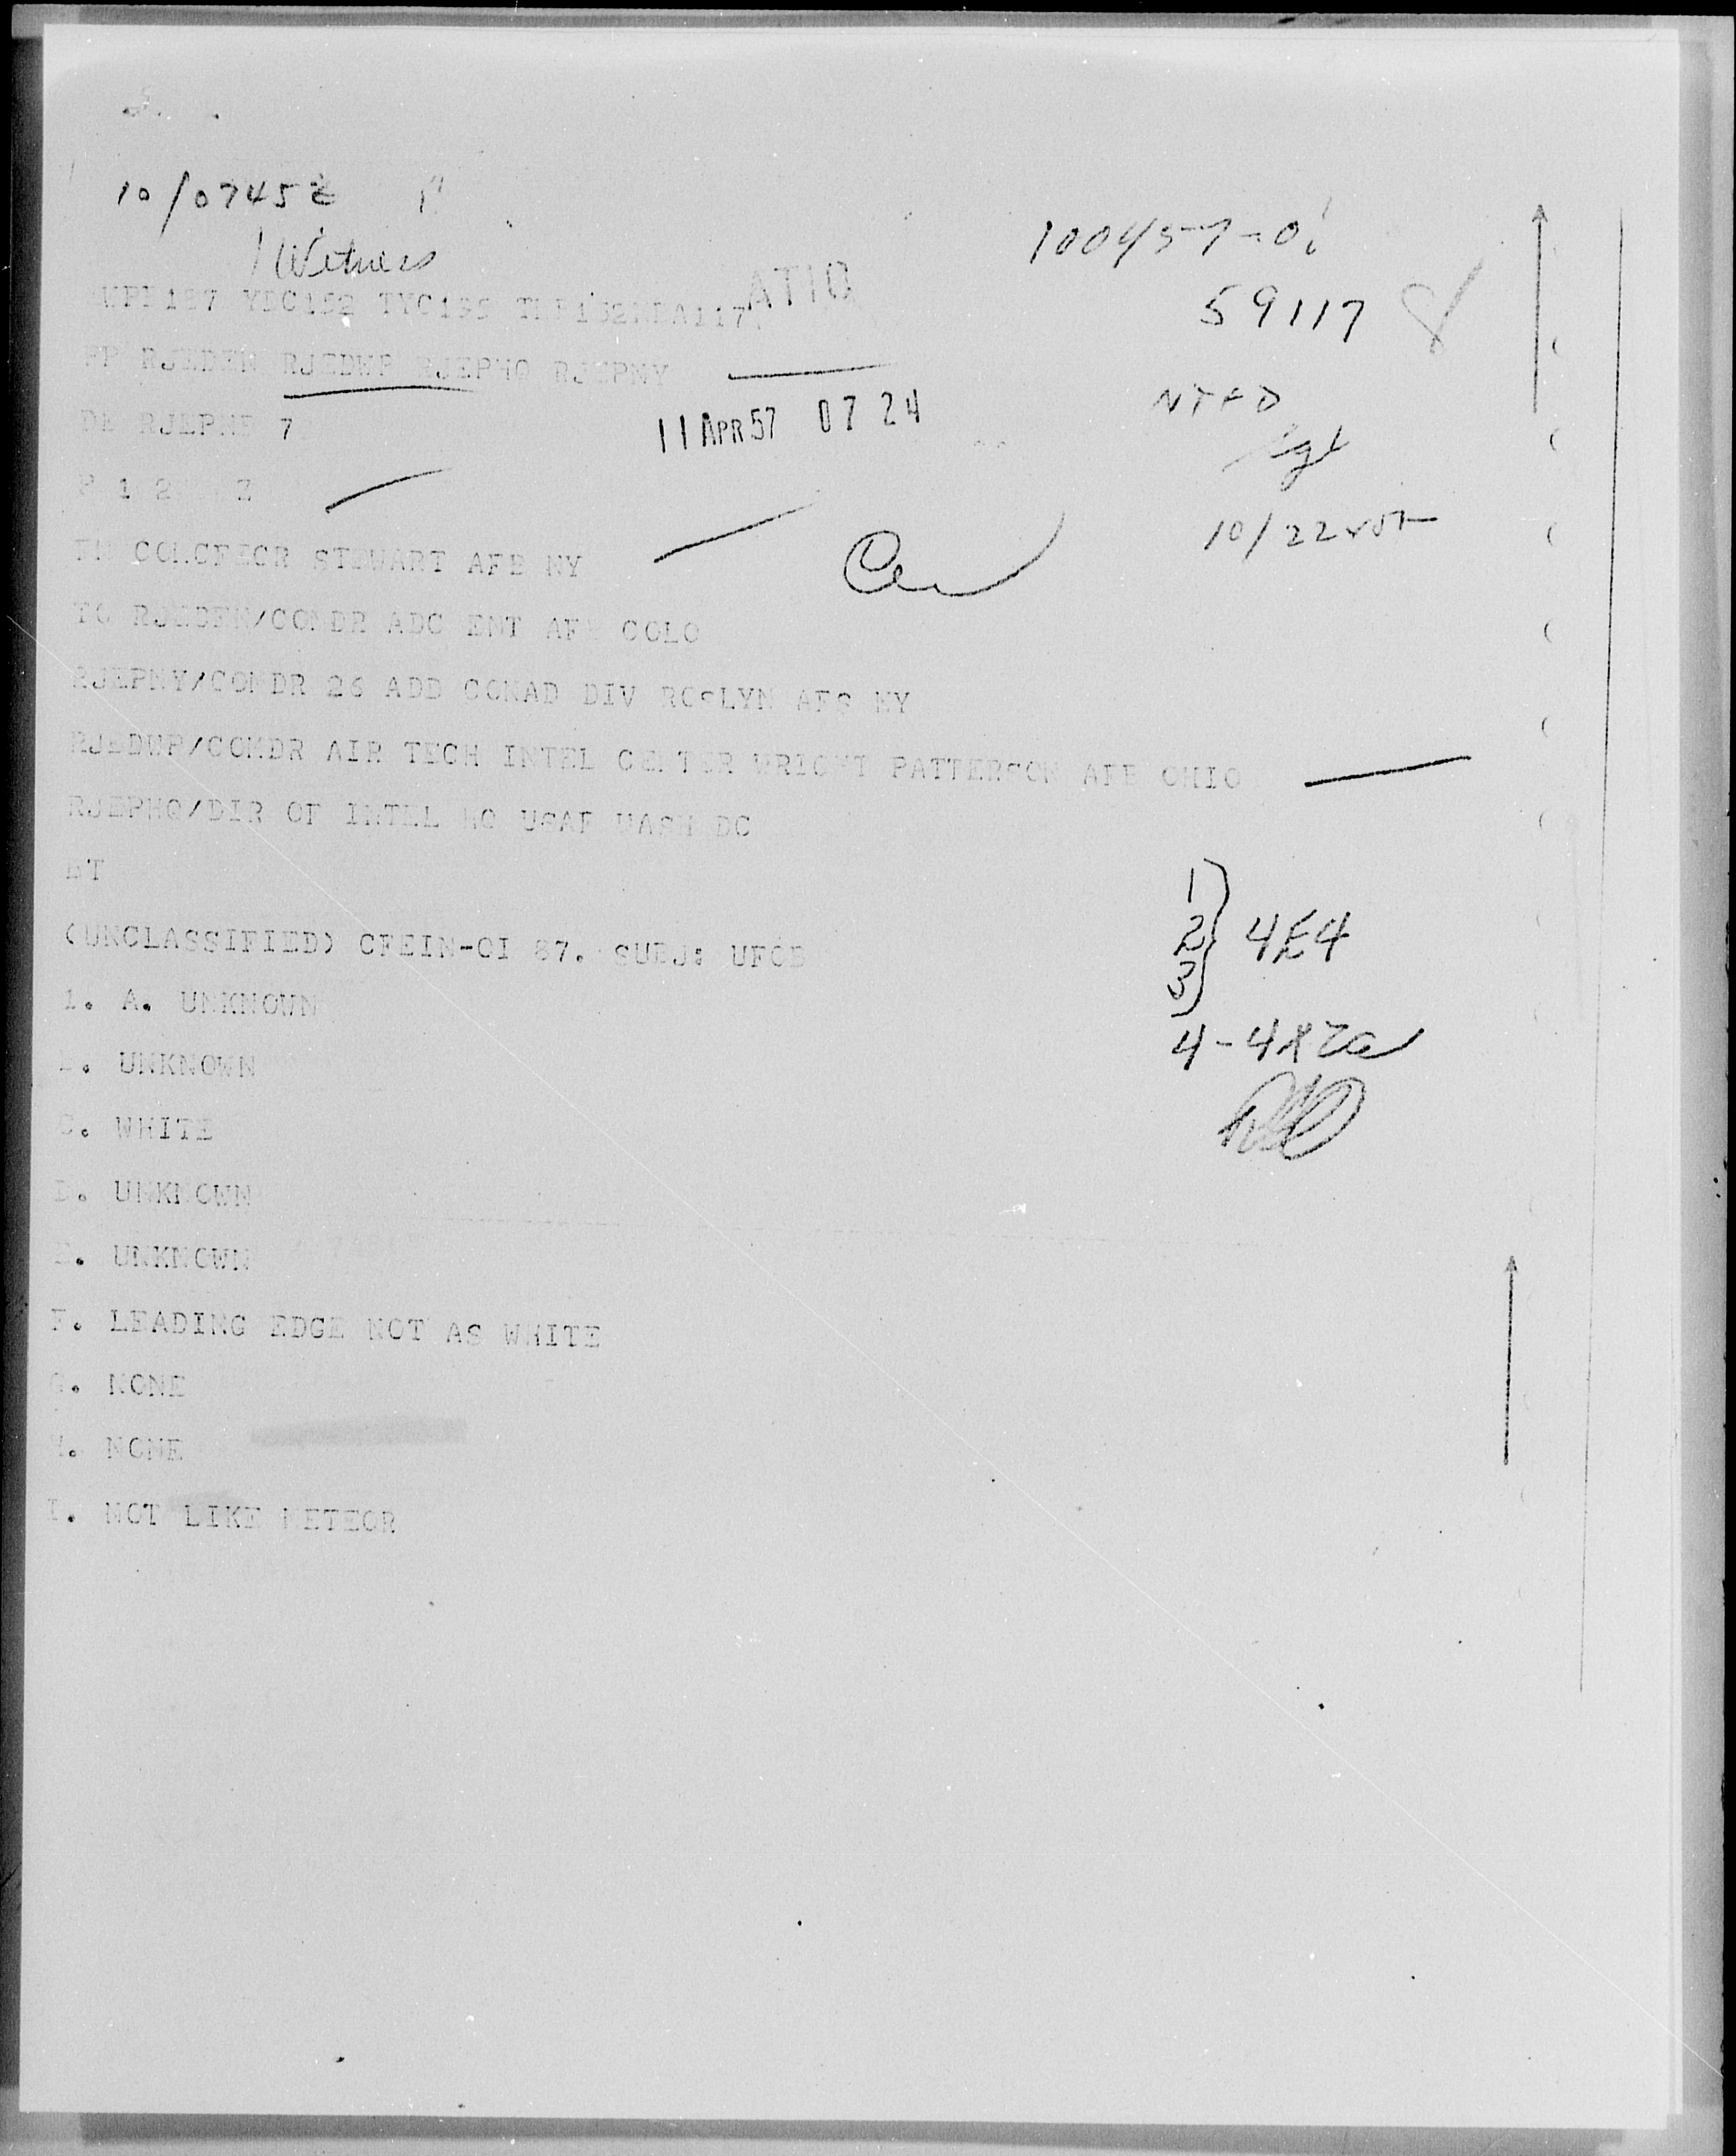 10/0745Z
1 Witness
100457-0
ATIQ
59117
RJEDEN RJEDWP RJEPHQ RJEPNY
DE RJEPNB 7
11 APR 57 07 24
NTFD
10/22
FM COMCFECR STEWART AFB NY
TO RJEDEN/COMDR ADC ENT AFB COLO
RJEPNY/COMDR 26 ADD CONAD DIV ROSLYN AFS NY
RJEDWP/COMDR AIR TECH INTEL CENTER WRIGHT PATTERSON AFB OHIO
RJEPHQ/DIR OF INTEL HQ USAF WASH DC
BT
1
2
3
4E4
(UNCLASSIFIED) CFEIN-OI 87. SUBJ: UFOB
1. A. UNKNOWN
B. UNKNOWN
C. WHITE
D. UNKNOWN
E. UNKNOWN
F. LEADING EDGE NOT AS WHITE
G. NONE
H. NONE
I. NOT LIKE METEOR